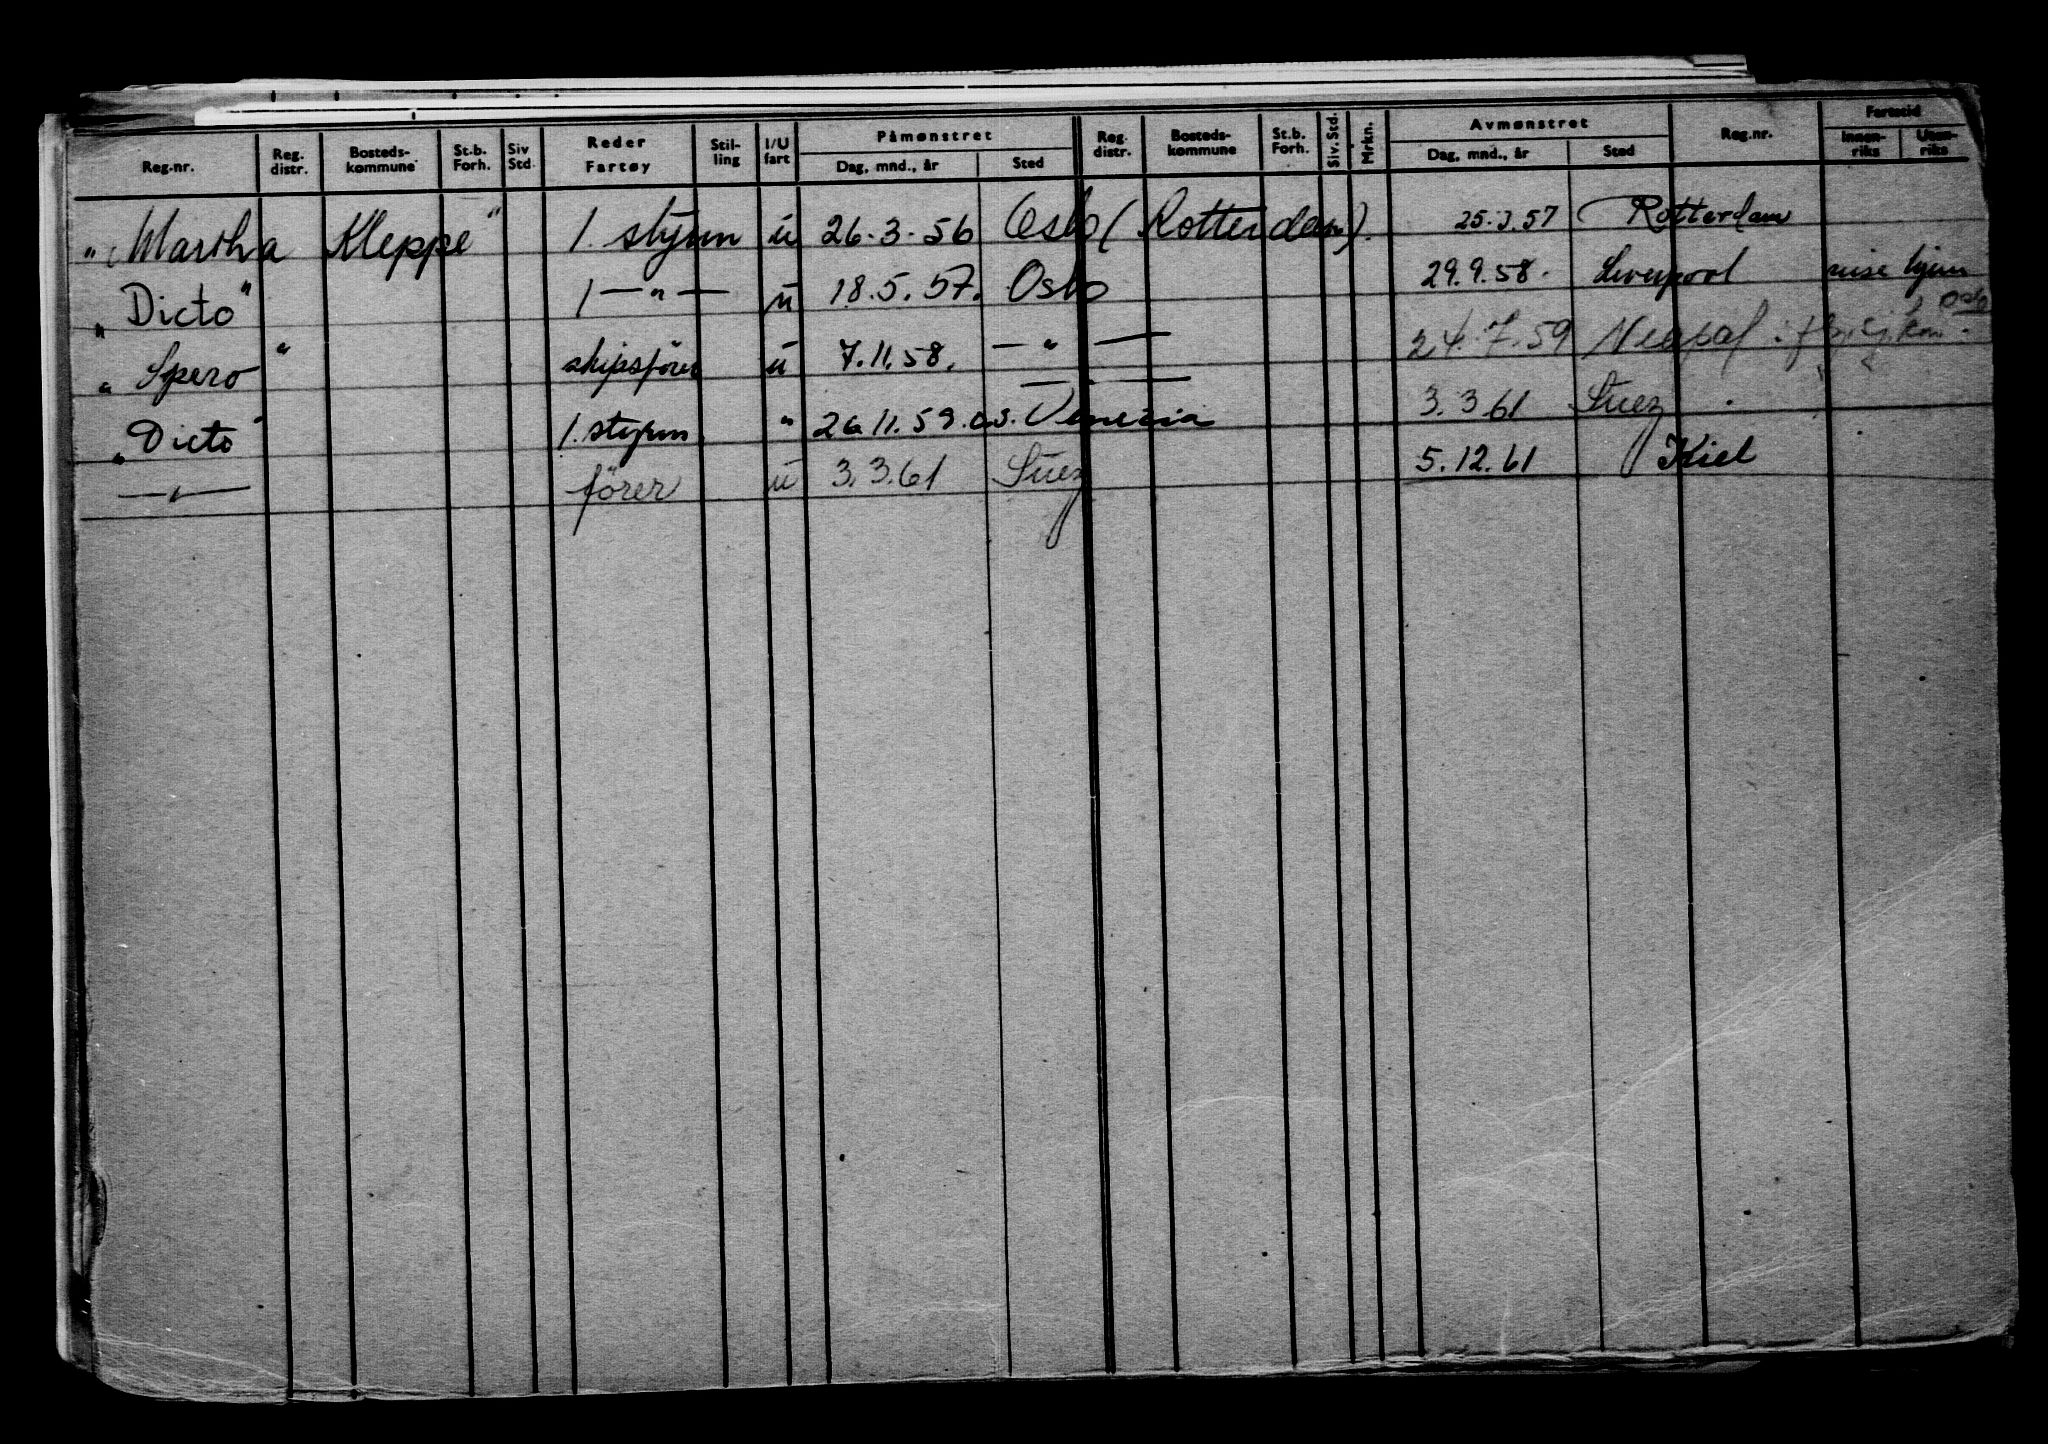 Reg.nr. Reg. distr. Bosteds-kommune St.b. Forh. Siv Std. Reder Fartøy Stil-ling I/U fart Påmønstret Dag, mnd., år Sted Reg. distr. Bosteds-kommune St.b. Forh. Siv. Std. Mrkn. Avmønstret Dag, mnd., år Sted Reg.nr. Fartstid Innen-riks Uten-riks
"Martha Kleppe" 1. styrm u 26.3.56 Oslo (Rotterdam). 25.3.57 Rotterdam
"Dicto" 1 — " — u 18.5.57. Oslo 29.9.58. Liverpool reise hjem
"Spero" skipsfører u 7.11.58. — " — 24.7.59 Neapel
"Dicto" 1. styrm " 26.11.59 Venezia 3.3.61 Suez
— " — fører u 3.3.61 Suez 5.12.61 Kiel